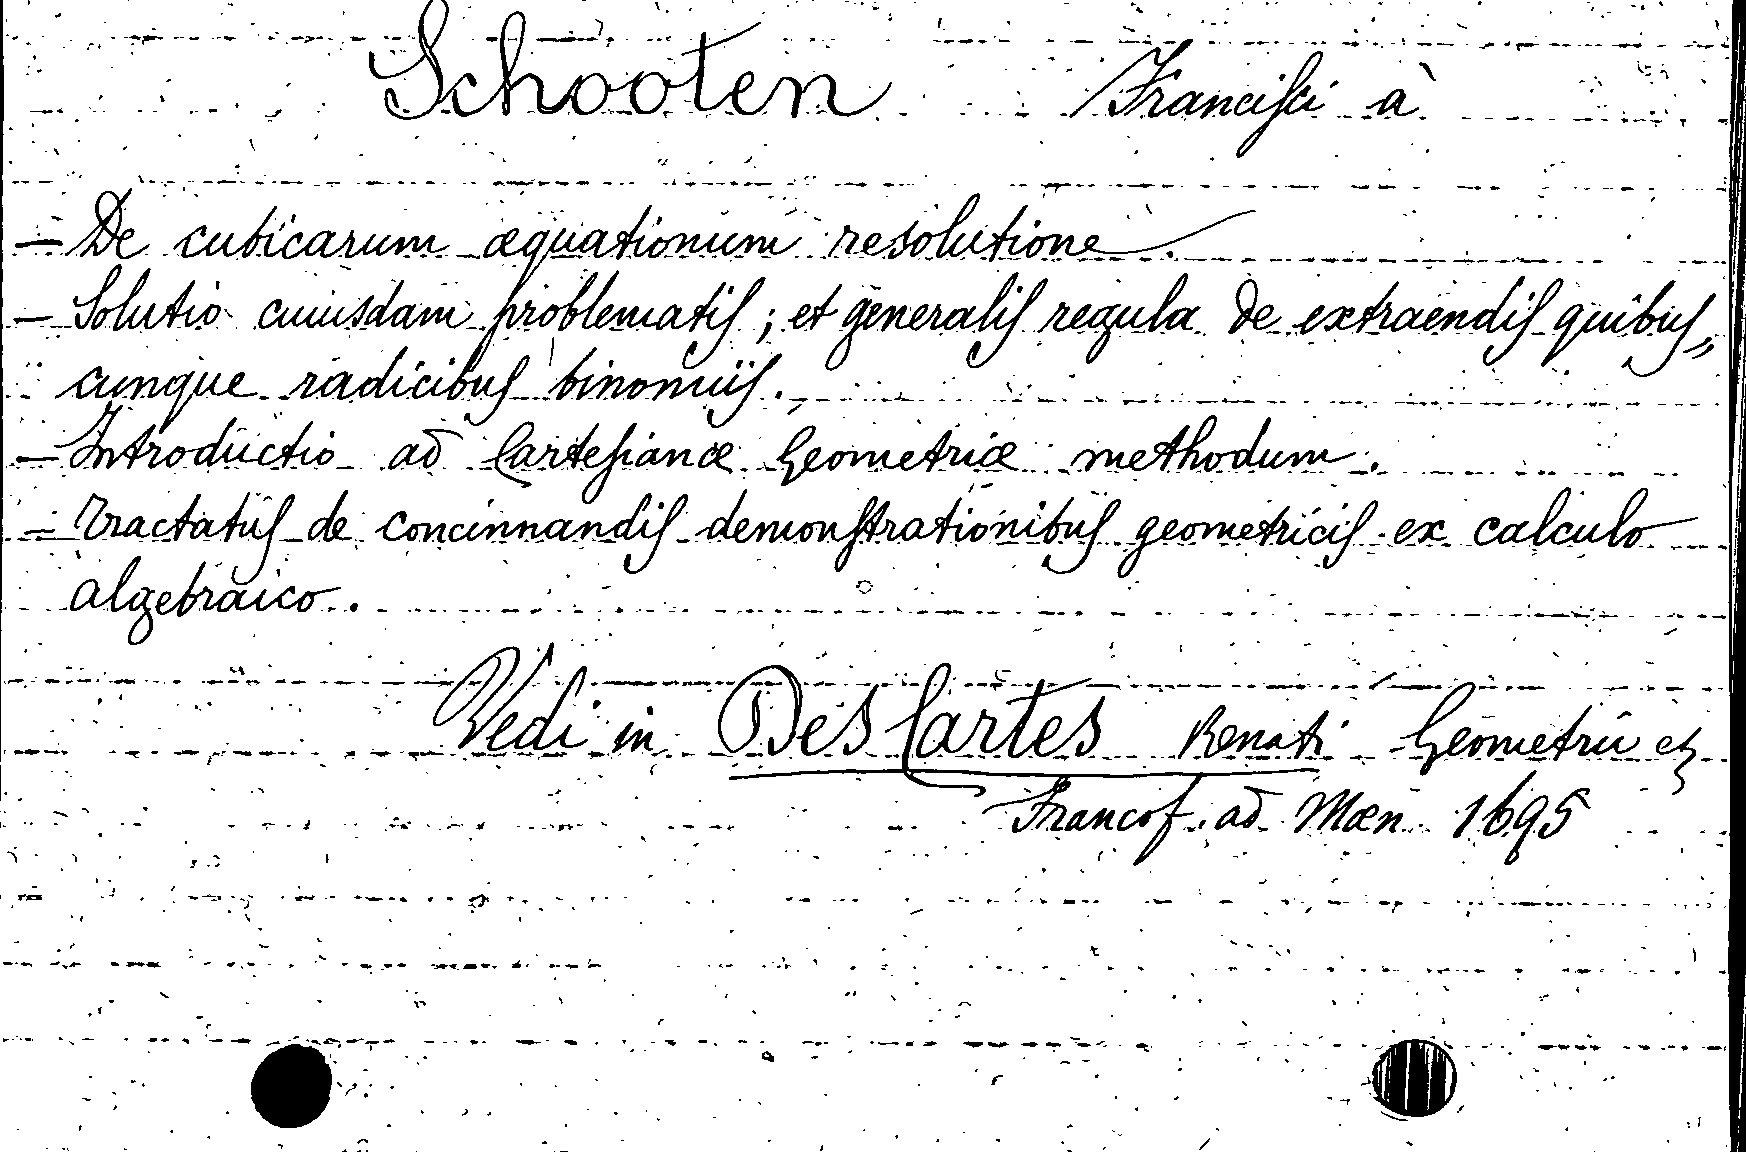 Schooten Francisci à
— De cubicarum æquationum resolutione.
— Solutio cuiusdam problematis; et generalis regula de extraendis quibus„
cunque radicibus binomiis.
— Introductio ad Cartesianæ Geometriæ methodum.
— Tractatus de concinnandis demonstrationibus geometricis ex calculo
algebraico.
Vedi in Des Cartes Renati Geometria etc
Francof. ad Mæn. 1695